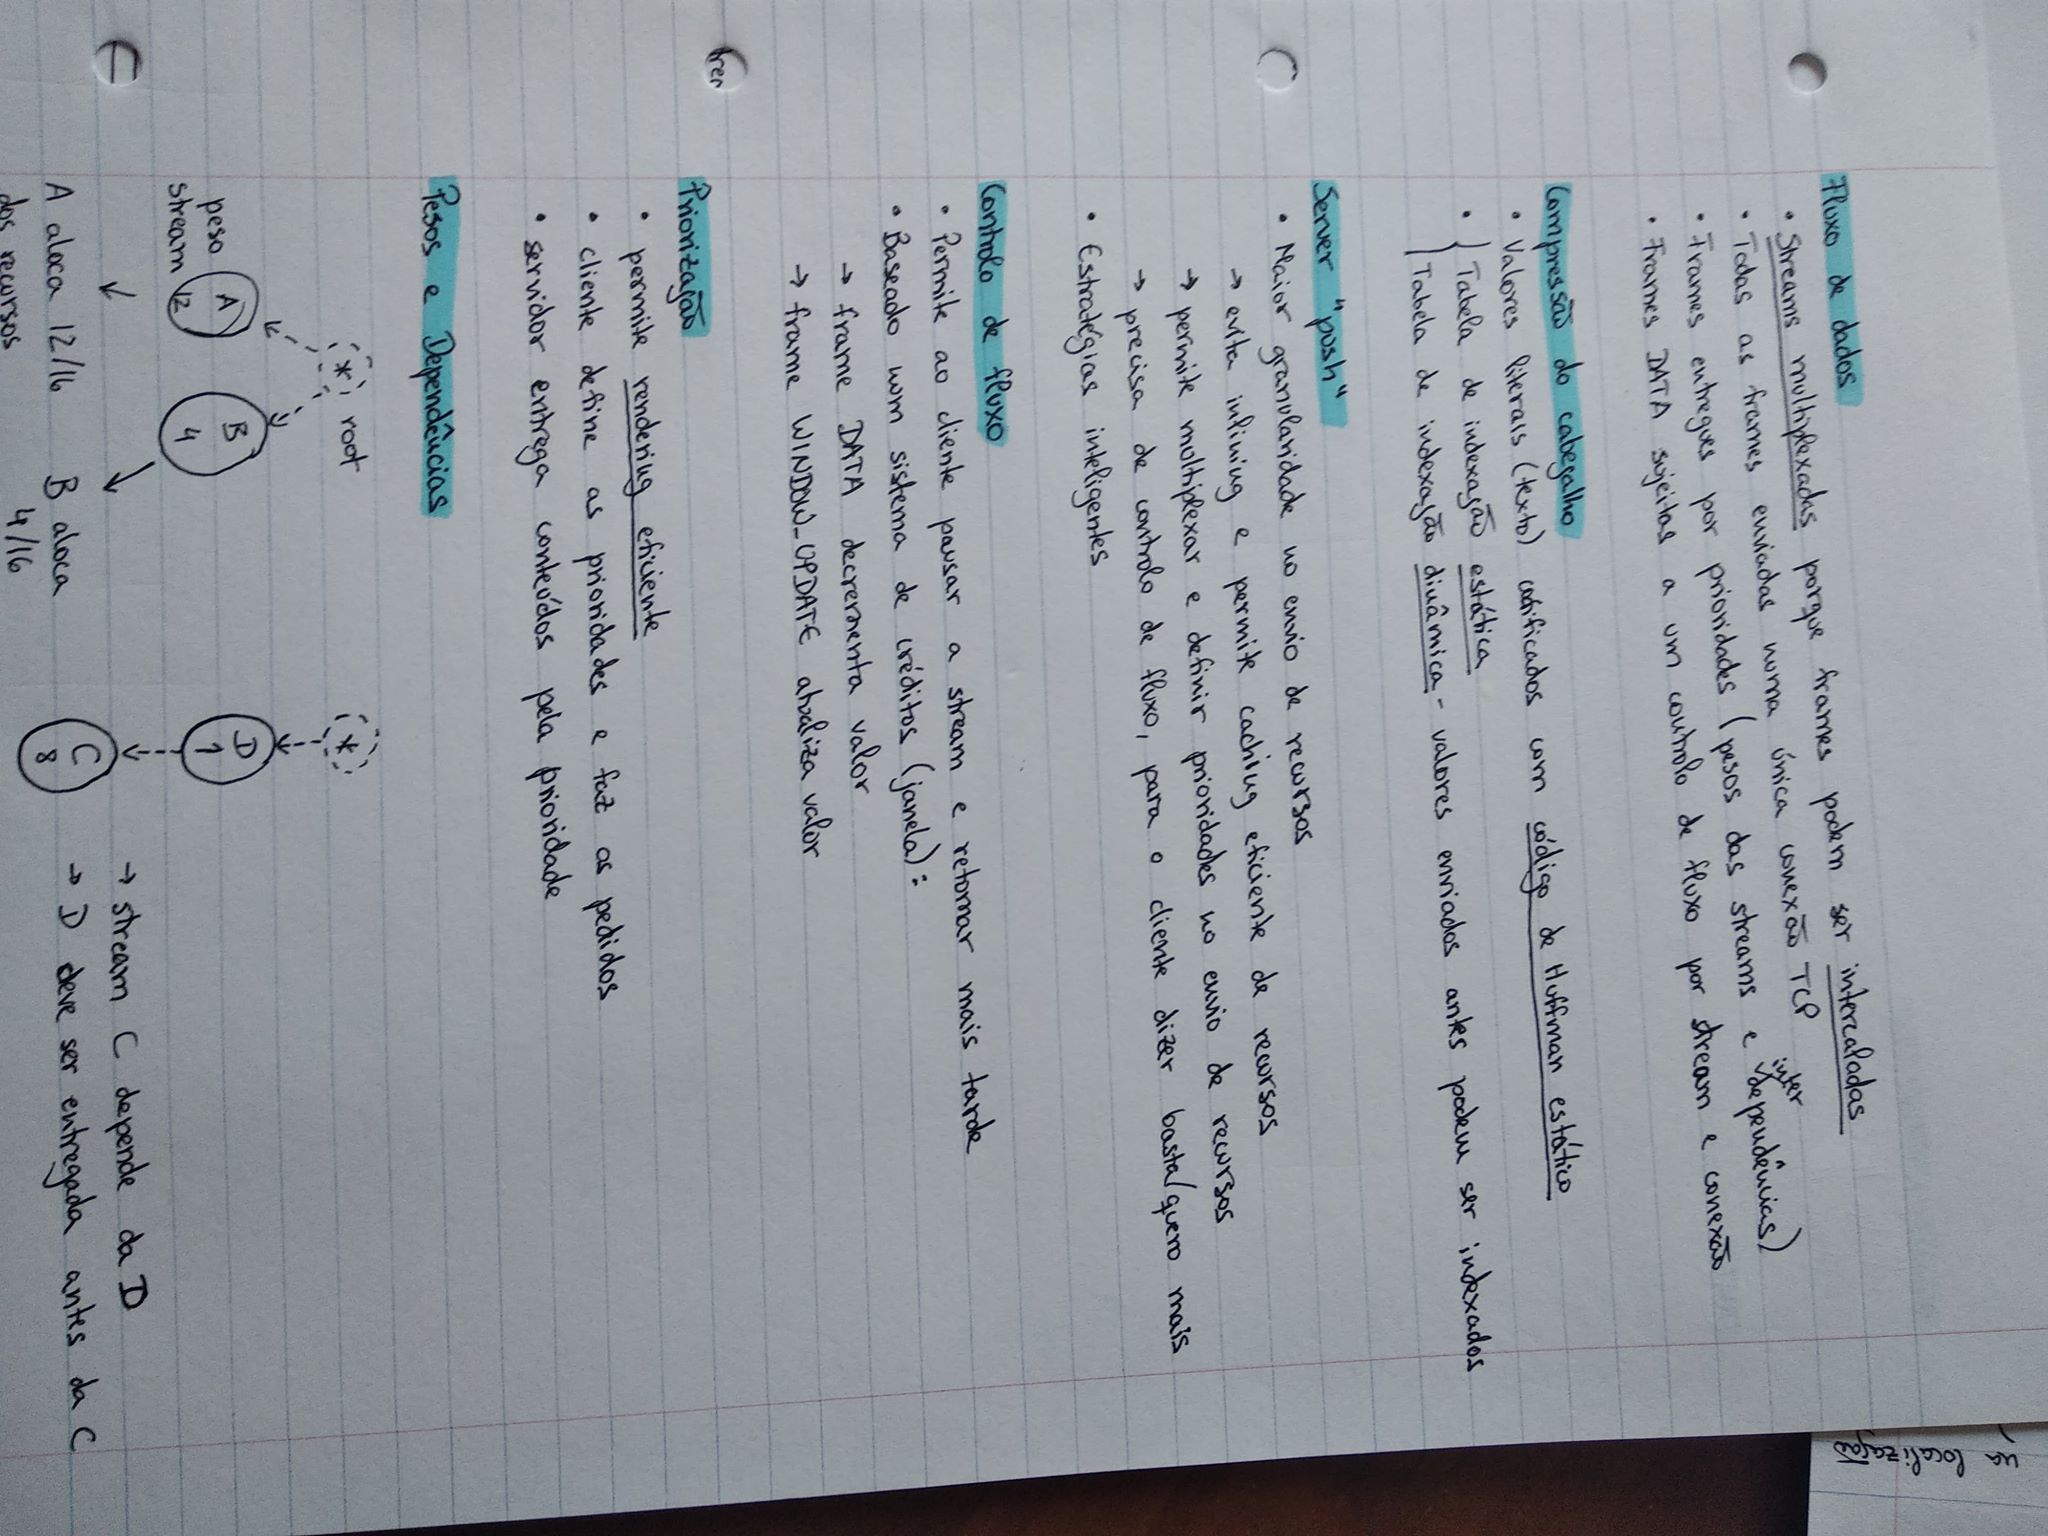 na localização
Fluxo de dados
• Streams multiplexadas porque frames podem ser intercaladas
• Todas as frames enviadas numa única conexão TCP
• Frames entregues por prioridades (pesos das streams e interdependências)
• Frames DATA sujeitas a um controlo de fluxo por stream e conexão
Compressão do cabeçalho
• Valores literais (texto) codificados com código de Huffman estático
• Tabela de indexação estática
Tabela de indexação dinâmica - valores enviados antes podem ser indexados
Server "push"
• Maior granularidade no envio de recursos
→ evita inlining e permite caching eficiente de recursos
→ permite multiplexar e definir prioridades no envio de recursos
→ precisa de controlo de fluxo, para o cliente dizer basta/quero mais
• Estratégias inteligentes
Controlo de fluxo
• Permite ao cliente pausar a stream e retomar mais tarde
• Baseado num sistema de créditos (janela):
→ frame DATA decrementa valor
→ frame WINDOW_UPDATE atualiza valor
Priorização
• permite rendering eficiente
• cliente define as prioridades e faz os pedidos
• servidor entrega conteúdos pela prioridade
Pesos e Dependências
* root
peso
stream
A
12
B
4
A aloca 12/16
dos recursos
B aloca
4/16
*
D
1
C
8
→ stream C depende da D
→ D deve ser entregada antes da C